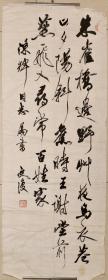 朱雀橋邊野草花烏衣巷
口夕陽斜舊時王謝堂前
燕飛入尋常百姓家
同志屬書